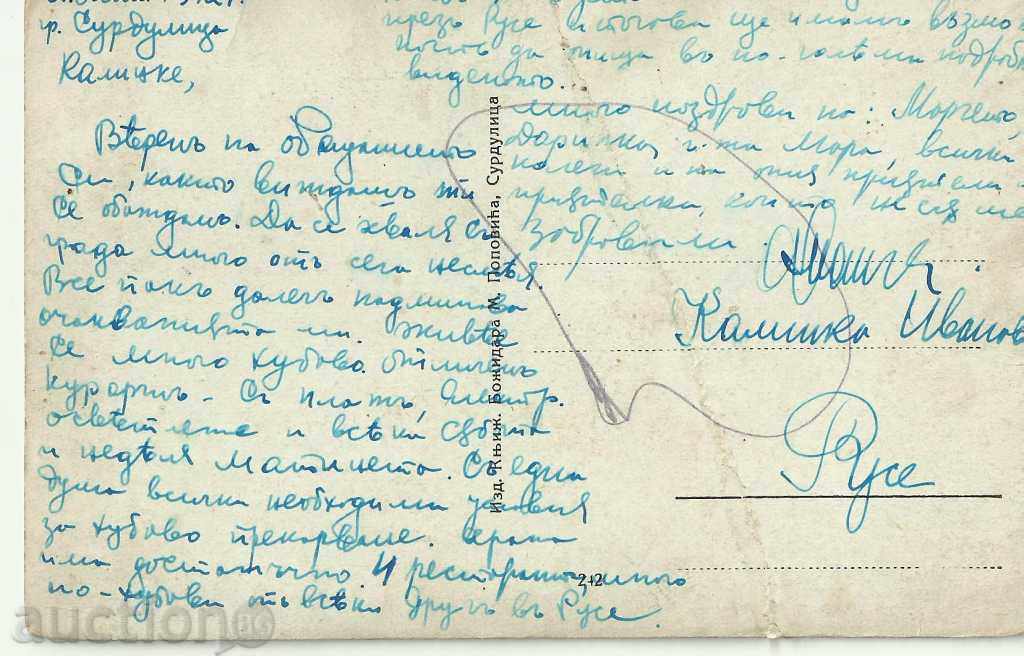 гр. Сурдулица
Калицке,
Вѣренъ на обещанието
си, както виждашъ ти
се обаждамъ. Да се хваля съ
града много отъ сега не смѣя.
Все пакъ далечъ надминава
очакванията ми. Живѣе
се много хубаво. Отличенъ
курортъ - съ плажъ, електр.
осветление и всѣка сѫбота
и недѣля матинета. Съ една
дума всички необходими условия
за хубаво прекарване. Храна
има достатъчно. 4 ресторанта, много
по-хубави отъ всѣки другъ въ Русе.
презъ Русе и тогова ще имаме възмо
ность да пиша въ по-голѣми подроб
виденото.
Много поздрави на: Марчето,
Даринка, г-жа Мара, всички
колеги и на ония приятели и
приятелки, които не сѫ ме
забравили.
Калинка Иванов
Русе
Изд. Књиж. Божидара М. Поповића, Сурдулица
2+2
auction